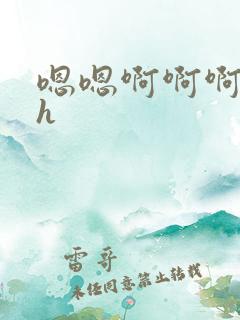 嗯嗯啊啊啊
h
雷哥
未经同意禁止转载